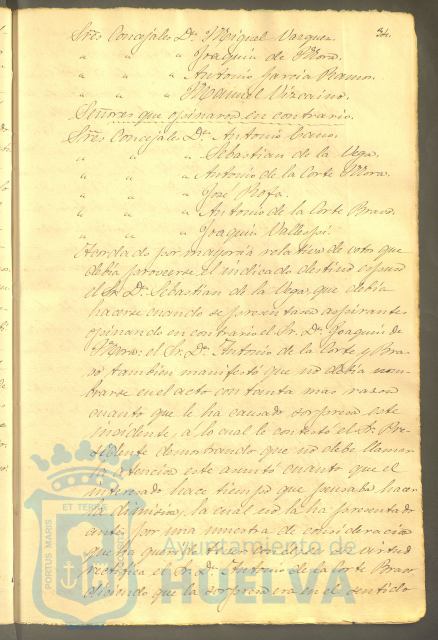 34.
Sres Concejales Dn Miguel Vazquez.
" " " Joaquin de Mora.
" " " Antonio Garcia Ramos.
" " " Manuel Vizcaino.
Señores que opinaron en contrario.
Sres Concejales Dn Antonio Cano.
" " " Sebastian de la Vega.
" " " Antonio de la Corte Mora.
" " " José Rofa.
" " " Antonio de la Corte Bravo.
" " " Joaquin Vallespi.
Acordado por mayoria relativa de votos que
debia proveerse el indicado destino espuso
el Sr. Dn Sebastian de la Vega, que debia
hacerse cuando se presentasen aspirantes
opinando en contrario el Sr. Dn Joaquin de
Mora: el Sr. Dn Antonio de la Corte y Bra-
vo tambien manifestó que no debia nom-
brarse en el acto con tanta mas razon
cuanto que le ha causado sorpresa este
incidente, á lo cual le contestó el Sr. Pre-
sidente demostrando que no debe llamar
la atencion este asunto cuanto que el
interesado hace tiempo que pensaba hacer
la dimision, la cual no la ha presentado
antes por una muestra de consideracion
que ha querido tener con el
rectifica el Sr. Dn Antonio de la Corte Bravo
diciendo que la sorpresa era en el sentido
PORTUS MARIS
ET TERRE
Ayuntamiento de
HUELVA